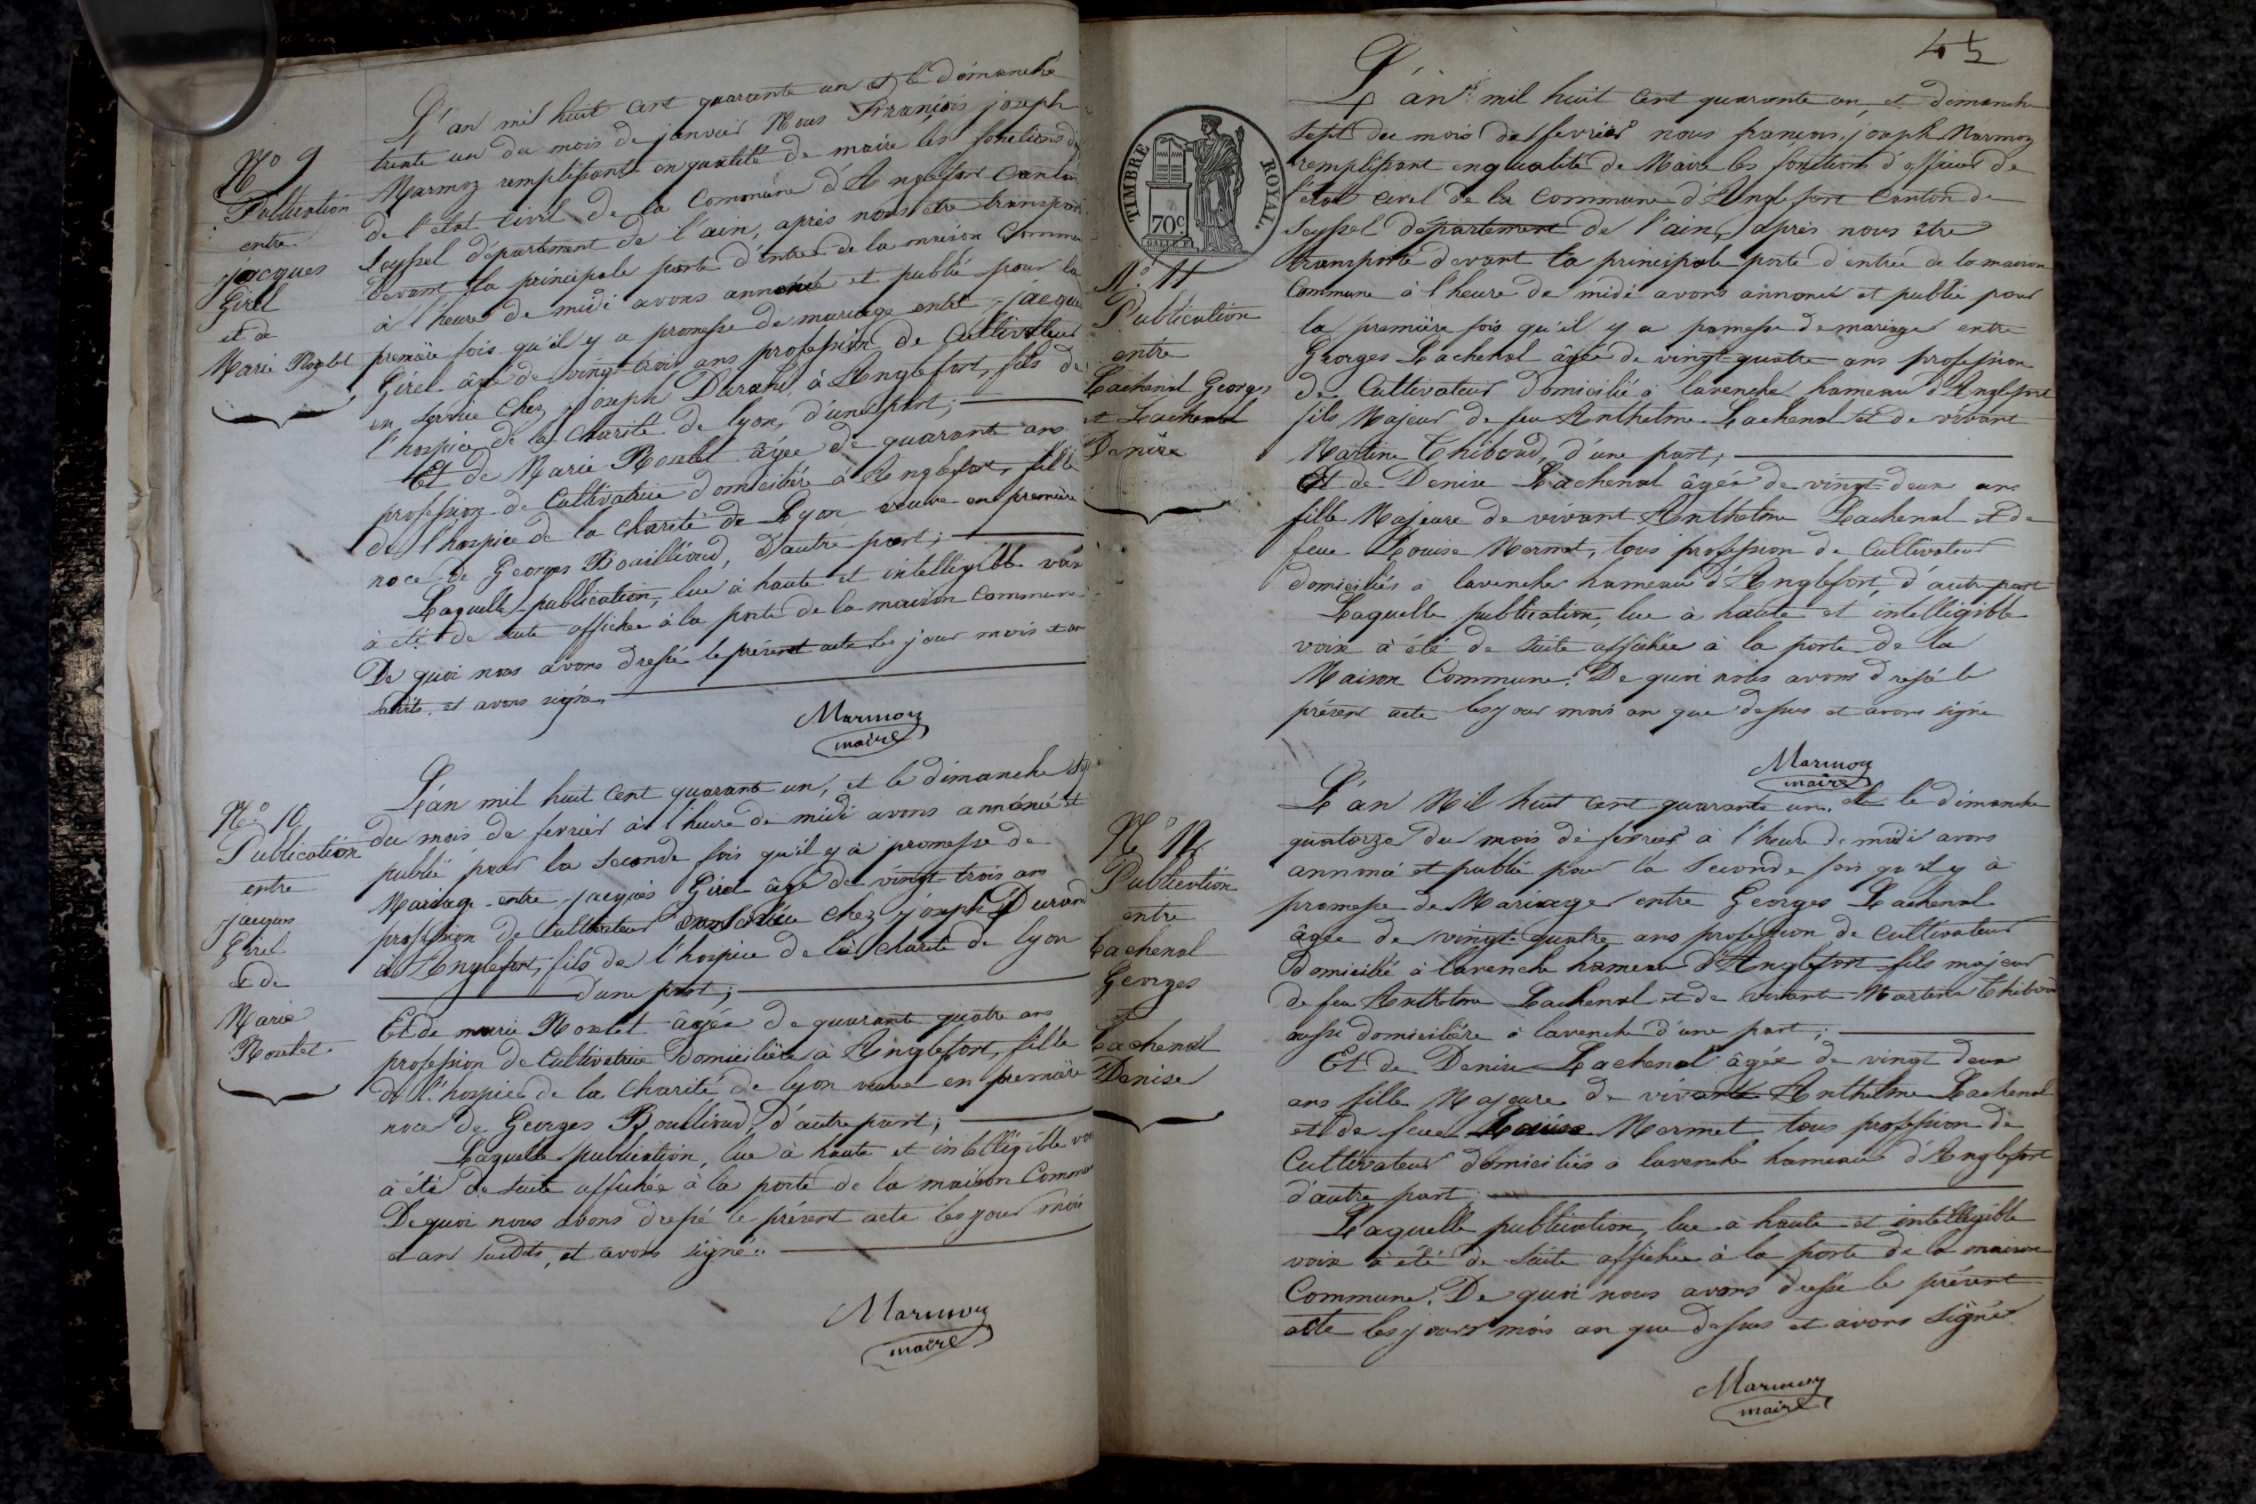 L'an mil huit cent quarante un et le dimanche
trente un du mois de janvier Nous François joseph
Marmoz remplissant en qualité de maire les fonctions d
de l'état civil de la Commune d'Anglefort Canton
Seyssel département de l'ain, après nous être transporté
devant la principale porte d'entrée de la maison Commune
à l'heure de midi avons annoncé et publié pour la
première fois qu'il y a promesse de mariage entre jacques
Girel âgé de vingt trois ans profession de Cultivateur
en service chez joseph Durand à Anglefort, fils de
l'hospice de la Charité de lyon, d'une part;
Et de Marie Roselet âgée de quarante ans
profession de Cultivatrice domiciliée à Anglefort, fille
de l'hospice de la charité de Lyon veuve en première
noce de Georges Bouilloud, d'autre part;
Laquelle publication, lue à haute et intelligible voix
à été de suite affichée à la porte de la maison Commune
De quoi nous avons dressé le présent acte les jour mois et an
susdits et avons signé.
Marmoz
maire
No 9
Publication
entre
jacques
Girel
et de
Marie Roselet
L'an mil huit cent quarante un, et le dimanche sept
du mois de fevrier à l'heure de midi avons annoncé et
publié pour la seconde fois qu'il y à promesse de
Mariage entre jacques Girel âgé de vingt trois ans
profession de Cultivateur domicilié chez joseph Durand
à Anglefort, fils de l'hospice de la charité de lyon
d'une part;
Et de marie Roselet âgée de quarante quatre ans
profession de Cultivatrice domiciliée à Anglefort, fille
de l'hospice de la Charité de lyon veuve en première
noce de Georges Bouilloud, d'autre part;
Laquelle publication, lue à haute et intelligible voix
à été de suite affichée à la porte de la maison Commune
De quoi nous avons dressé le présent acte les jour mois
et an susdits, et avons signé.
Marmoz
maire
No 10
Publication
entre
jacques
Girel
et de
Marie
Roselet
45
TIMBRE ROYAL.
70c
L'an mil huit cent quarante un, et dimanche
sept du mois de fevrier nous françois joseph Marmoz
remplissant en qualité de Maire les fonctions d'officier de
l'état civil de la commune d'Anglefort Canton de
Seyssel département de l'ain, après nous être
transporté devant la principale porte d'entrée de la maison
Commune à l'heure de midi avons annoncé et publié pour
la première fois qu'il y a promesse de mariage entre
Georges Lachenal âgée de vingt quatre ans profession
de Cultivateur domicilié à lavenche hameau d'Anglefort
fils Majeur de feu Anthelme Lachenal et de vivante
Martine Thiboud, d'une part;
Et de Denise Lachenal âgée de vingt deux ans
fille Majeure de vivant Anthelme Lachenal et de
feue Louise Mermet, tous profession de Cultivateur
domiciliés à lavenche hameau d'Anglefort, d'autre part
Laquelle publication lue à haute et intelligible
voix à été de suite affichée à la porte de la
Maison Commune. De quoi nous avons dressé le
présent acte les jour mois an que dessus et avons signé
Marmoz
maire
No. 11
Publication
entre
Lachenal Georges
et Lachenal
Denise
L'an Mil huit cent quarante un, et le dimanche
quatorze du mois de fevrier à l'heure de midi avons
annoncé et publié pour la seconde fois qu'il y à
promesse de Mariage entre Georges Lachenal
âgée de vingt quatre ans profession de cultivateur
domicilié à lavenche hameau d'Anglefort fils majeur
de feu Anthelme Lachenal et de vivante Martine Thiboud
aussi domiciliée à lavenche d'une part;
Et de Denise Lachenal âgée de vingt deux
ans fille Majeure de vivant Anthelme Lachenal
et de feue Louise Mermet tous profession de
Cultivateur domiciliés à lavenche hameau d'Anglefort
d'autre part
Laquelle publication, lue à haute et intelligible
voix à été de suite affichée à la porte de la maison
Commune. De quoi nous avons dressé le présent
acte les jours mois an que dessus et avons signé
Marmoz
maire
No 12
Publication
entre
Lachenal
Georges
et
Lachenal
Denise